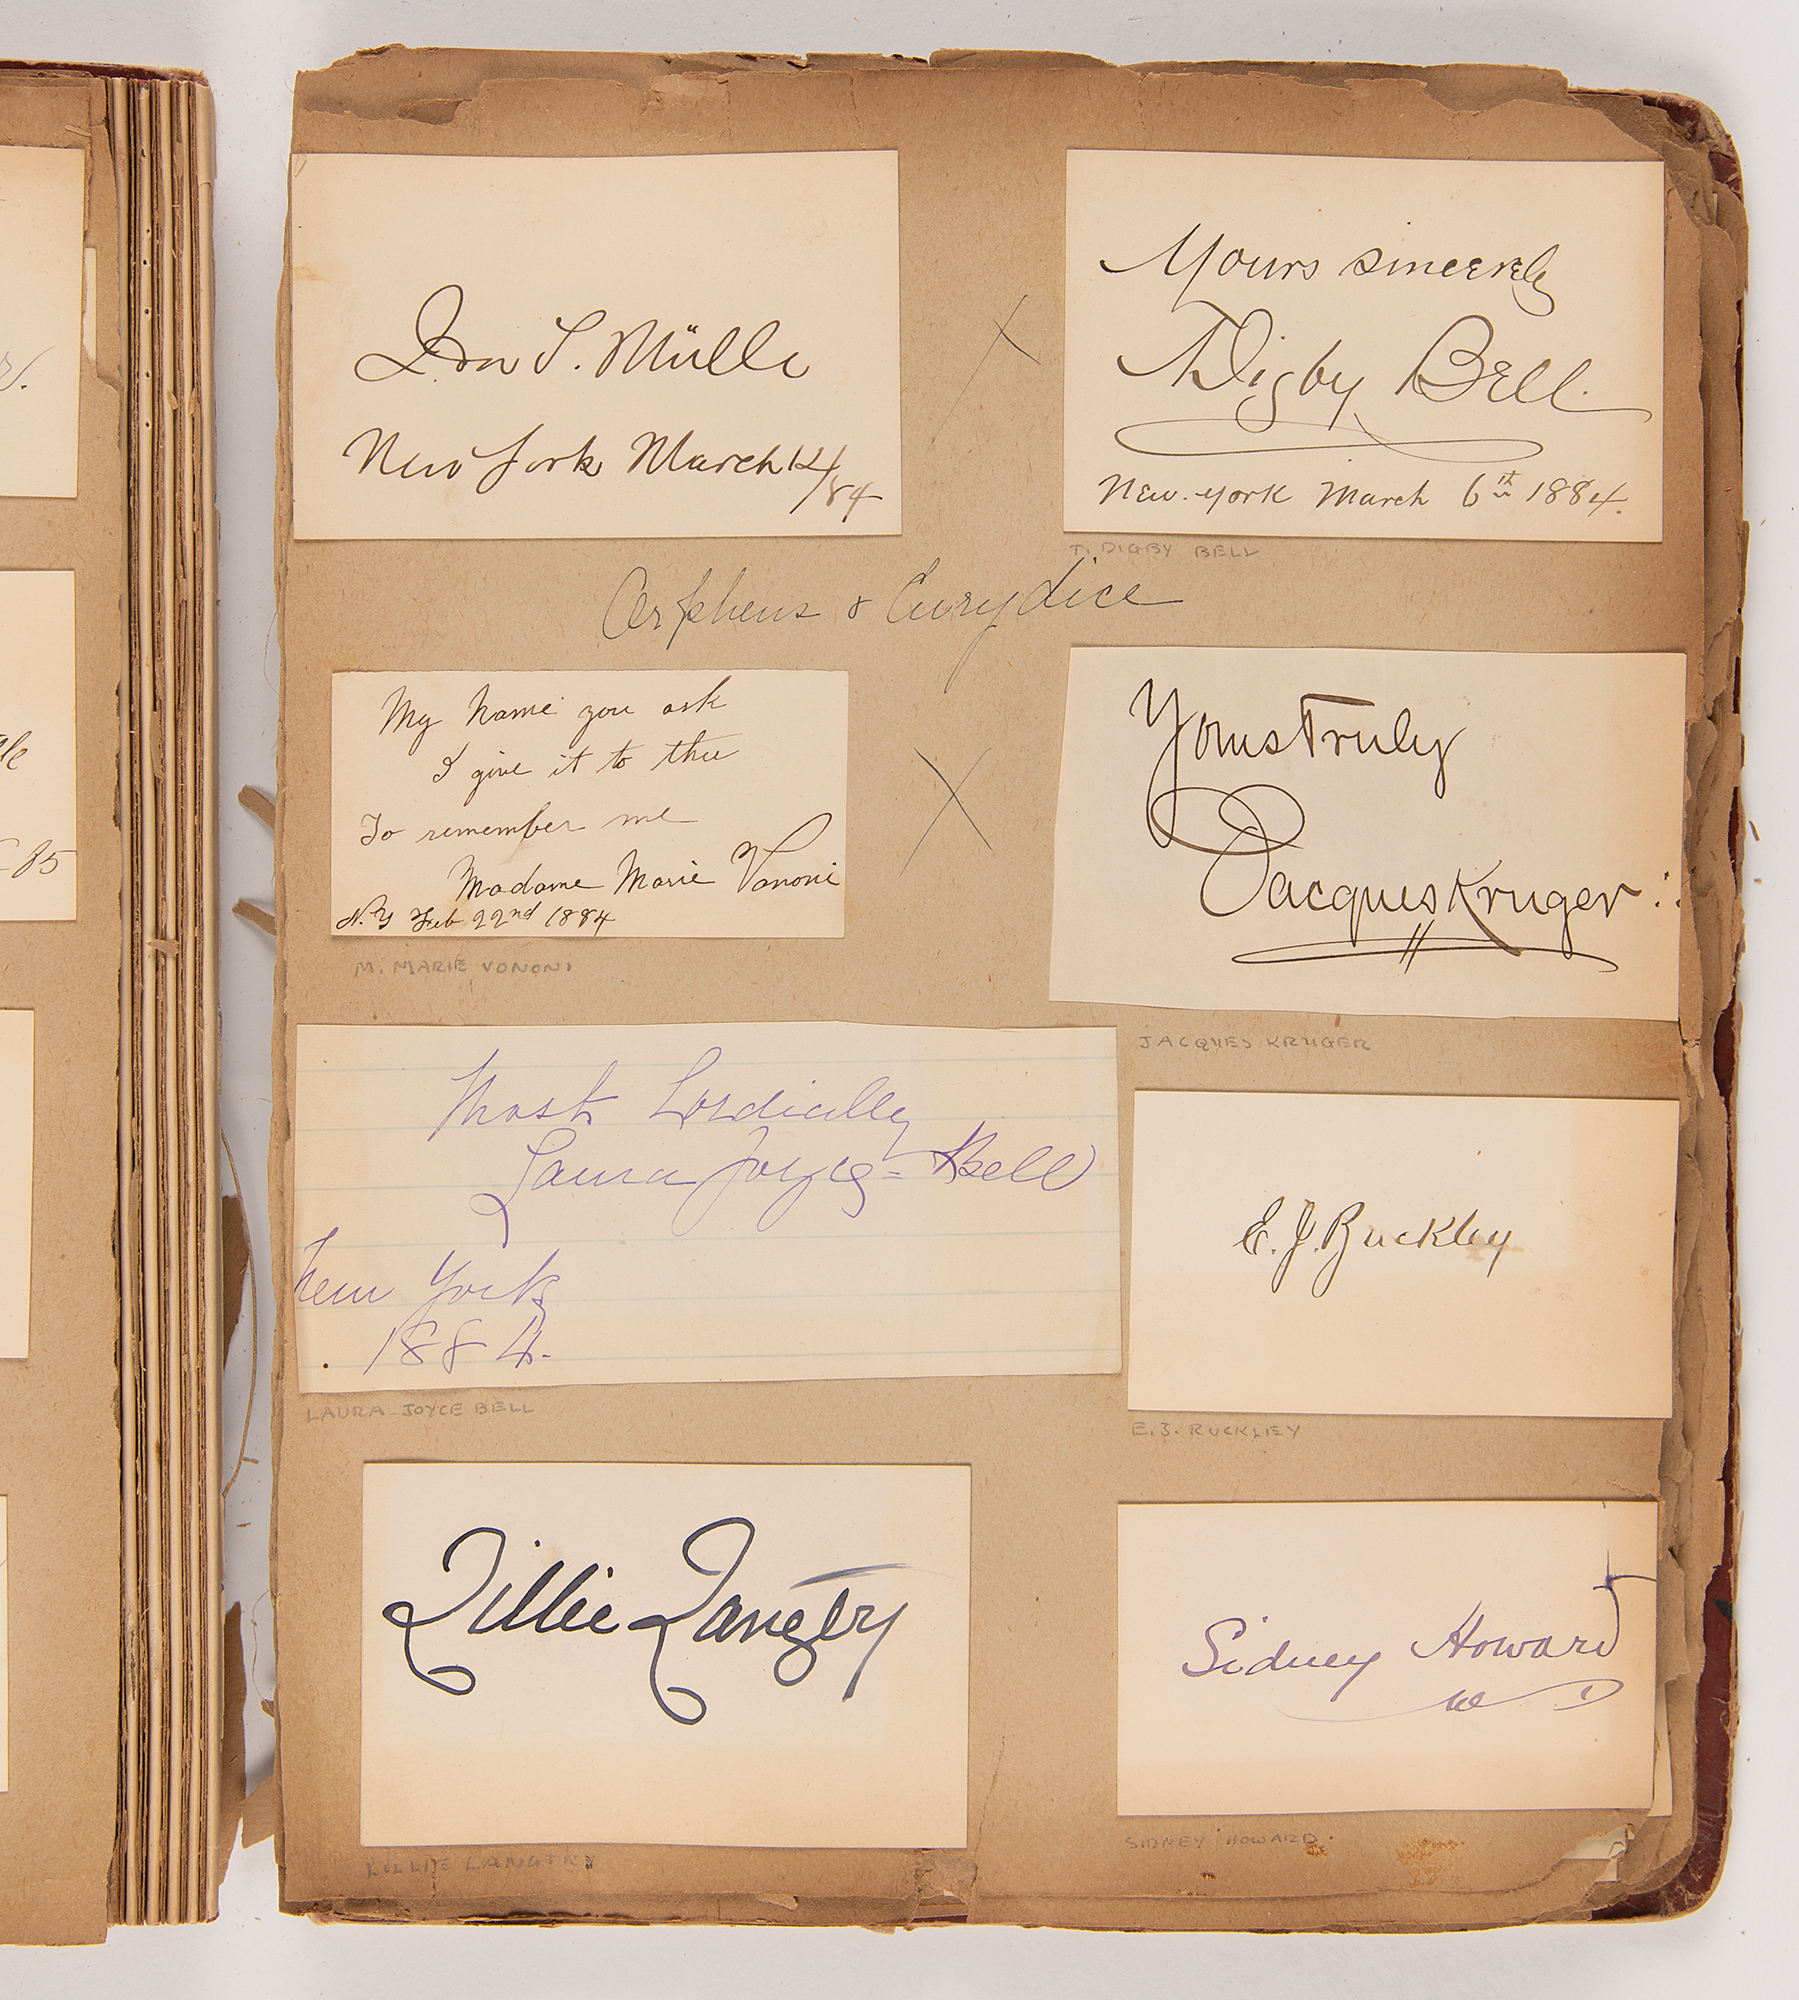 Ida S. Mülle
New York March 12/84
Yours sincerely
Digby Bell.
New. York March 6th 1884.
T. DIGBY BELL
Orpheus & Eurydice
My Name you ask
I give it to thee
To remember me
Madame Marie Vanoni
N.Y Feb 22nd 1884
M. MARIE VONONI
Yours Truly
Jacques Kruger
JACQUES KRUGER
Most Cordially
Laura Joyce-Bell
New York
1884.
LAURA JOYCE BELL
E. J. Buckley
E. J. BUCKLEY
Lillie Langtry
LILLIE LANGTRY
Sidney Howard
SIDNEY HOWARD.
85